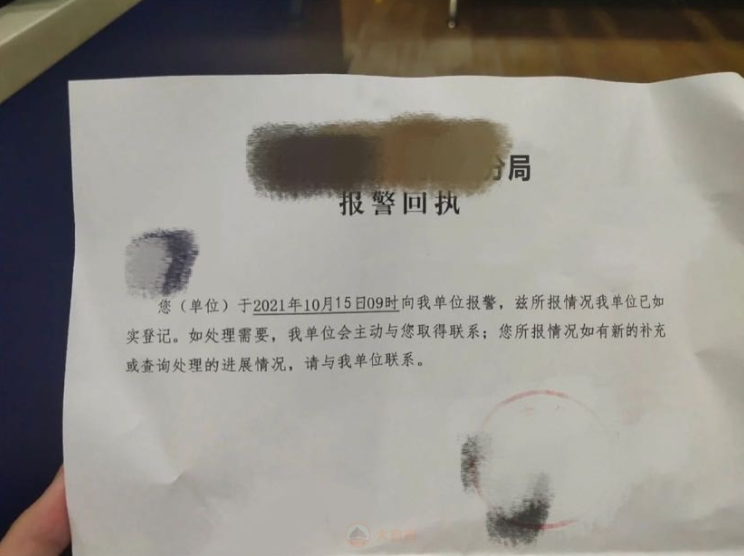 分局
报警回执
您（单位）于2021年10月15日09时向我单位报警，兹所报情况我单位已如
实登记。如处理需要，我单位会主动与您取得联系；您所报情况如有新的补充
或查询处理的进展情况，请与我单位联系。